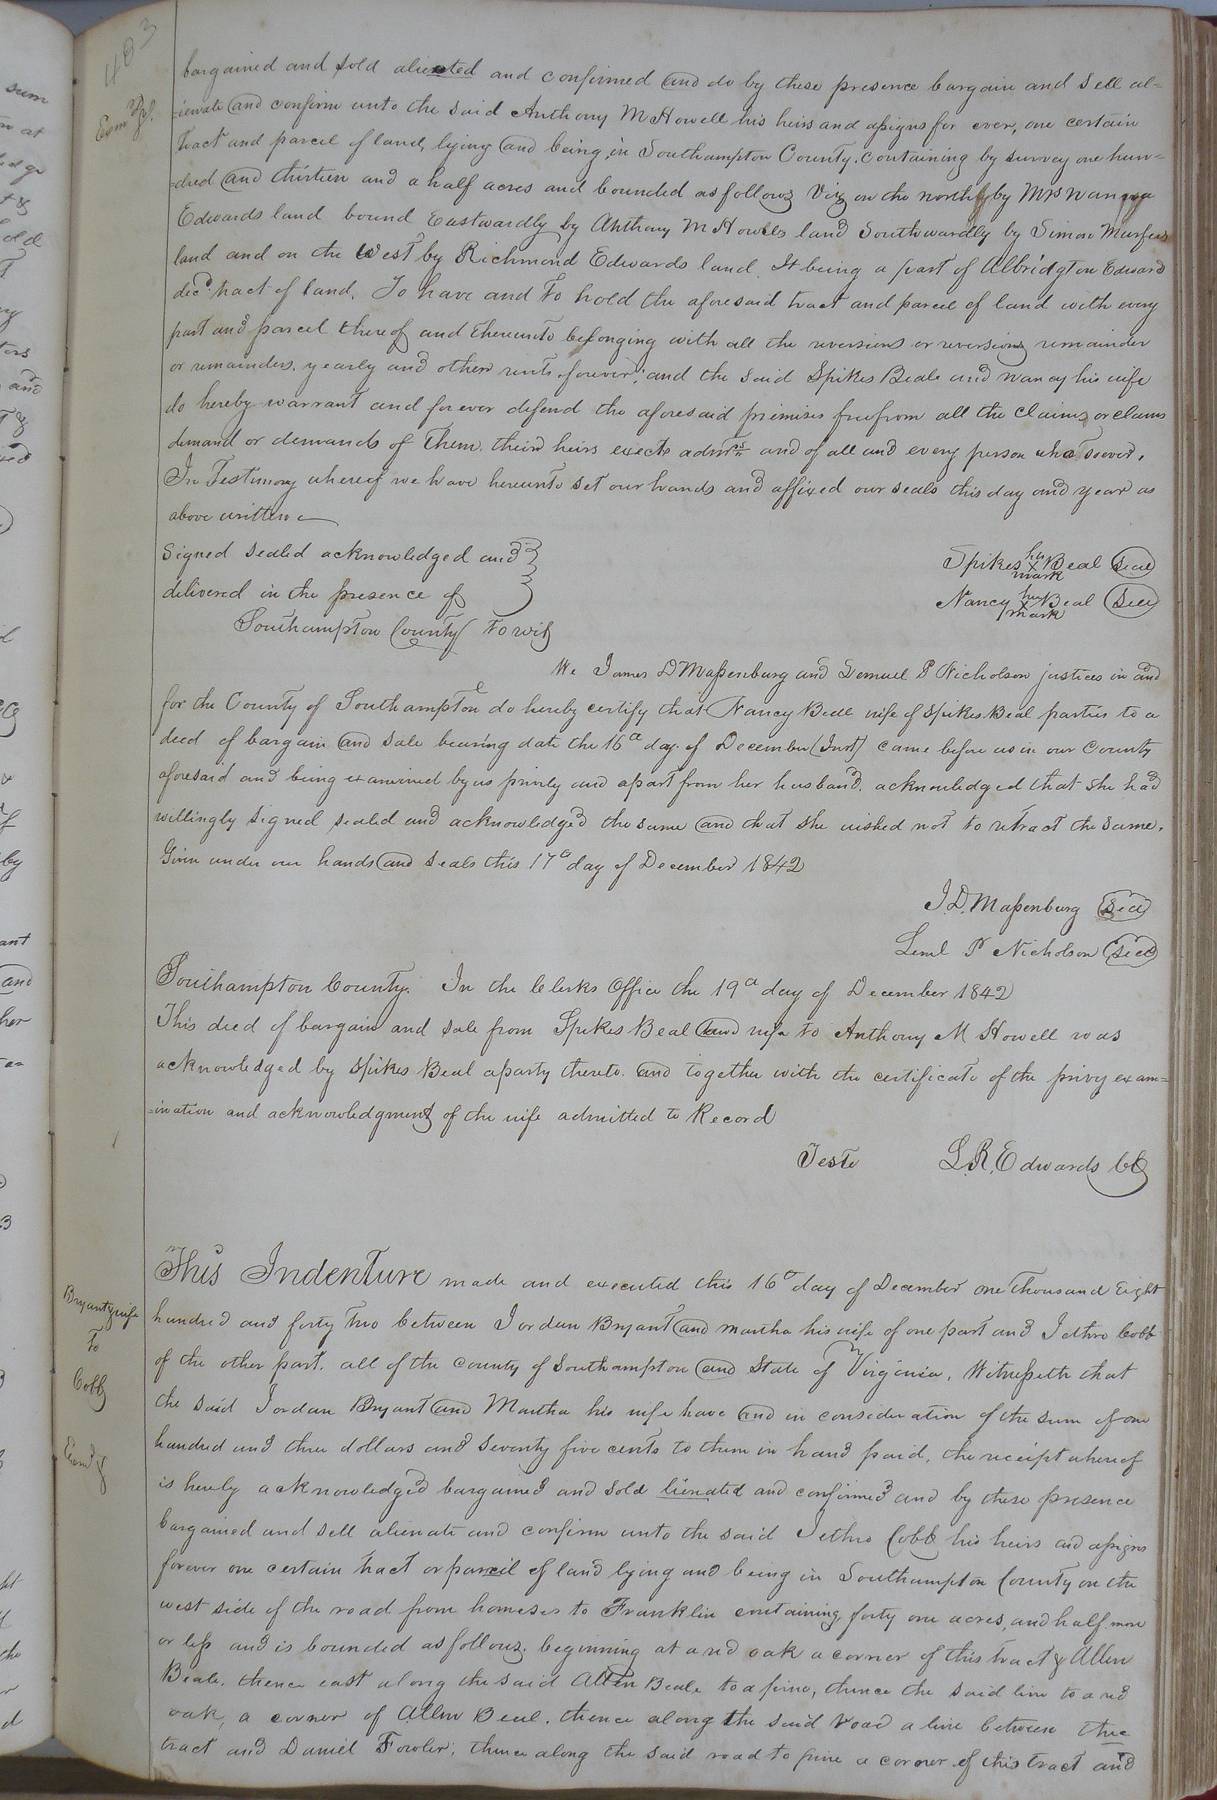 403
Exm'd
bargained and sold alienated and confirmed and do by these presence bargain and sell al-
=ienate and confirm unto the said Anthony M Howell his heirs and assigns for ever, one certain
tract and parcel of land, lying and being in Southampton County. Containing by survey one hun-
=dred and thirteen and a half acres and bounded as follows Viz on the north by Mrs
Edwards land bound Eastwardly by Anthony M Howells land Southwardly by Simon Murfees
land and on the West by Richmond Edwards land. It being a part of Albridgton Edward
decd tract of land. To have and to hold the aforesaid tract and parcel of land with every
part and parcel thereof and thereunto belonging with all the reversions or reversions remainder
or remainders, yearly and other rents forever; and the said Spikes Beale and Nancy his wife
do hereby warrant and forever defend the aforesaid premises free from all the claims or claims
demand or demands of them. their heirs exects admrs and of all and every person whatsoever.
In Testimony whereof we have hereunto set our hands and affixed our seals this day and year as
above written
Signed sealed acknowledged and
delivered in the presence of
Spikes his x mark Beal Seal
Nancy her x mark Beal Seal
Southampton County To wit
We James D Massenburg and Lemuel P Nicholson justices in and
for the County of Southampton do hereby certify that Nancy Beal wife of Spikes Beal parties to a
deed of bargain and sale bearing date the 16th day of December (Inst) came before us in our County
aforesaid and being examined by us privily and apart from her husband. acknowledged that she had
willingly signed sealed and acknowledged the same and that she wished not to retract the same.
Given under our hands and seals this 17th day of December 1842
J. D. Massenburg Seal
Leml P Nicholson Seal
Southampton County. In the Clerks Office the 19th day of December 1842
This deed of bargain and sale from Spikes Beal and wife to Anthony M Howell was
acknowledged by Spikes Beal a party thereto. and together with the certificate of the privy exam=
=ination and acknowledgment of the wife admitted to Record
Teste L. R. Edwards CC
Bryant & wife
To
Cobb
Exm'd
This Indenture made and executed this 16th day of December one Thousand Eight
hundred and forty two between Jordan Bryant and Martha his wife of one part and Jethro Cobb
of the other part. all of the County of Southampton and State of Virginia, Witnesseth that
the said Jordan Bryant and Martha his wife have and in consideration of the sum of one
hundred and three dollars and seventy five cents to them in hand paid, the receipt whereof
is hereby acknowledged bargained and sold lienated and confirmed and by these presence
bargained and sell alienate and confirm unto the said Jethro Cobb his heirs and assigns
forever one certain tract or parcel of land lying and being in Southampton County on the
west side of the road from homeses to Franklin containing, forty one acres, and half more
or less and is bounded as follows. beginning at a red oak a corner of this tract & Allen
Beale. thence east along the said Allen Beale to a pine, thence the said line to a red
oak, a corner of Allen Beal. thence along the said road a line between the
tract and Daniel Fowler, thence along the said road to pine a corner of this tract and